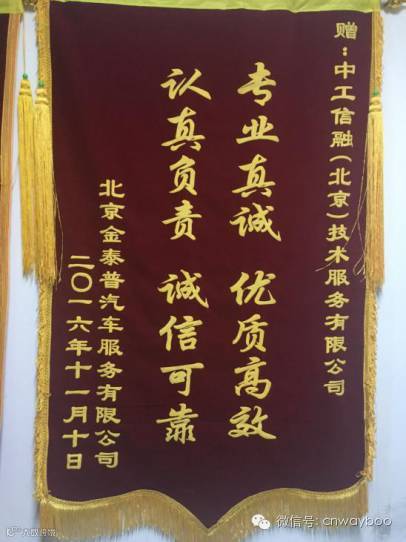 赠：中工信融（北京）技术服务有限公司
专业真诚 优质高效
认真负责 诚信可靠
北京金泰普汽车服务有限公司
二〇一六年十一月十日
微信号: cnwayboo